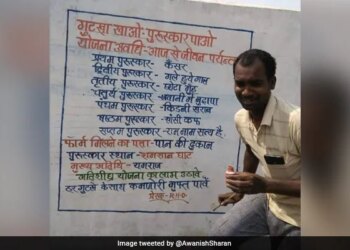 गुटखा खाओ-पुरूस्कार पाओ
योजना अवधि-आज से जीवन पर्यन्त
प्रथम पुरूस्कार- कैंसर
द्वितीय पुरूस्कार- गले हुये गाल
तृतीय पुरूस्कार- छोटा मुँह
चतुर्थ पुरूस्कार- जवानी में बुढ़ापा
पंचम पुरूस्कार- किडनी खराब
षष्ठम पुरूस्कार- खाँसी कफ
सप्तम पुरूस्कार- राम नाम सत्य है
फार्म मिलने का पता- पान की दुकान
पुरूस्कार स्थान- शमशान घाट
मुख्य अतिथि- यमराज
अतिशीघ्र योजना का लाभ उठावे
हर गुटखे के साथ कमजोरी मुफ्त पावे
Image tweeted by @AwanishSharan